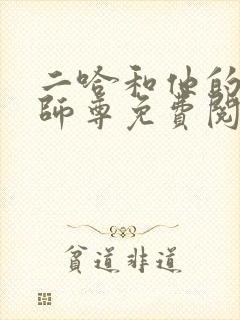 二哈和他的
師尊免費閱
貧道非道